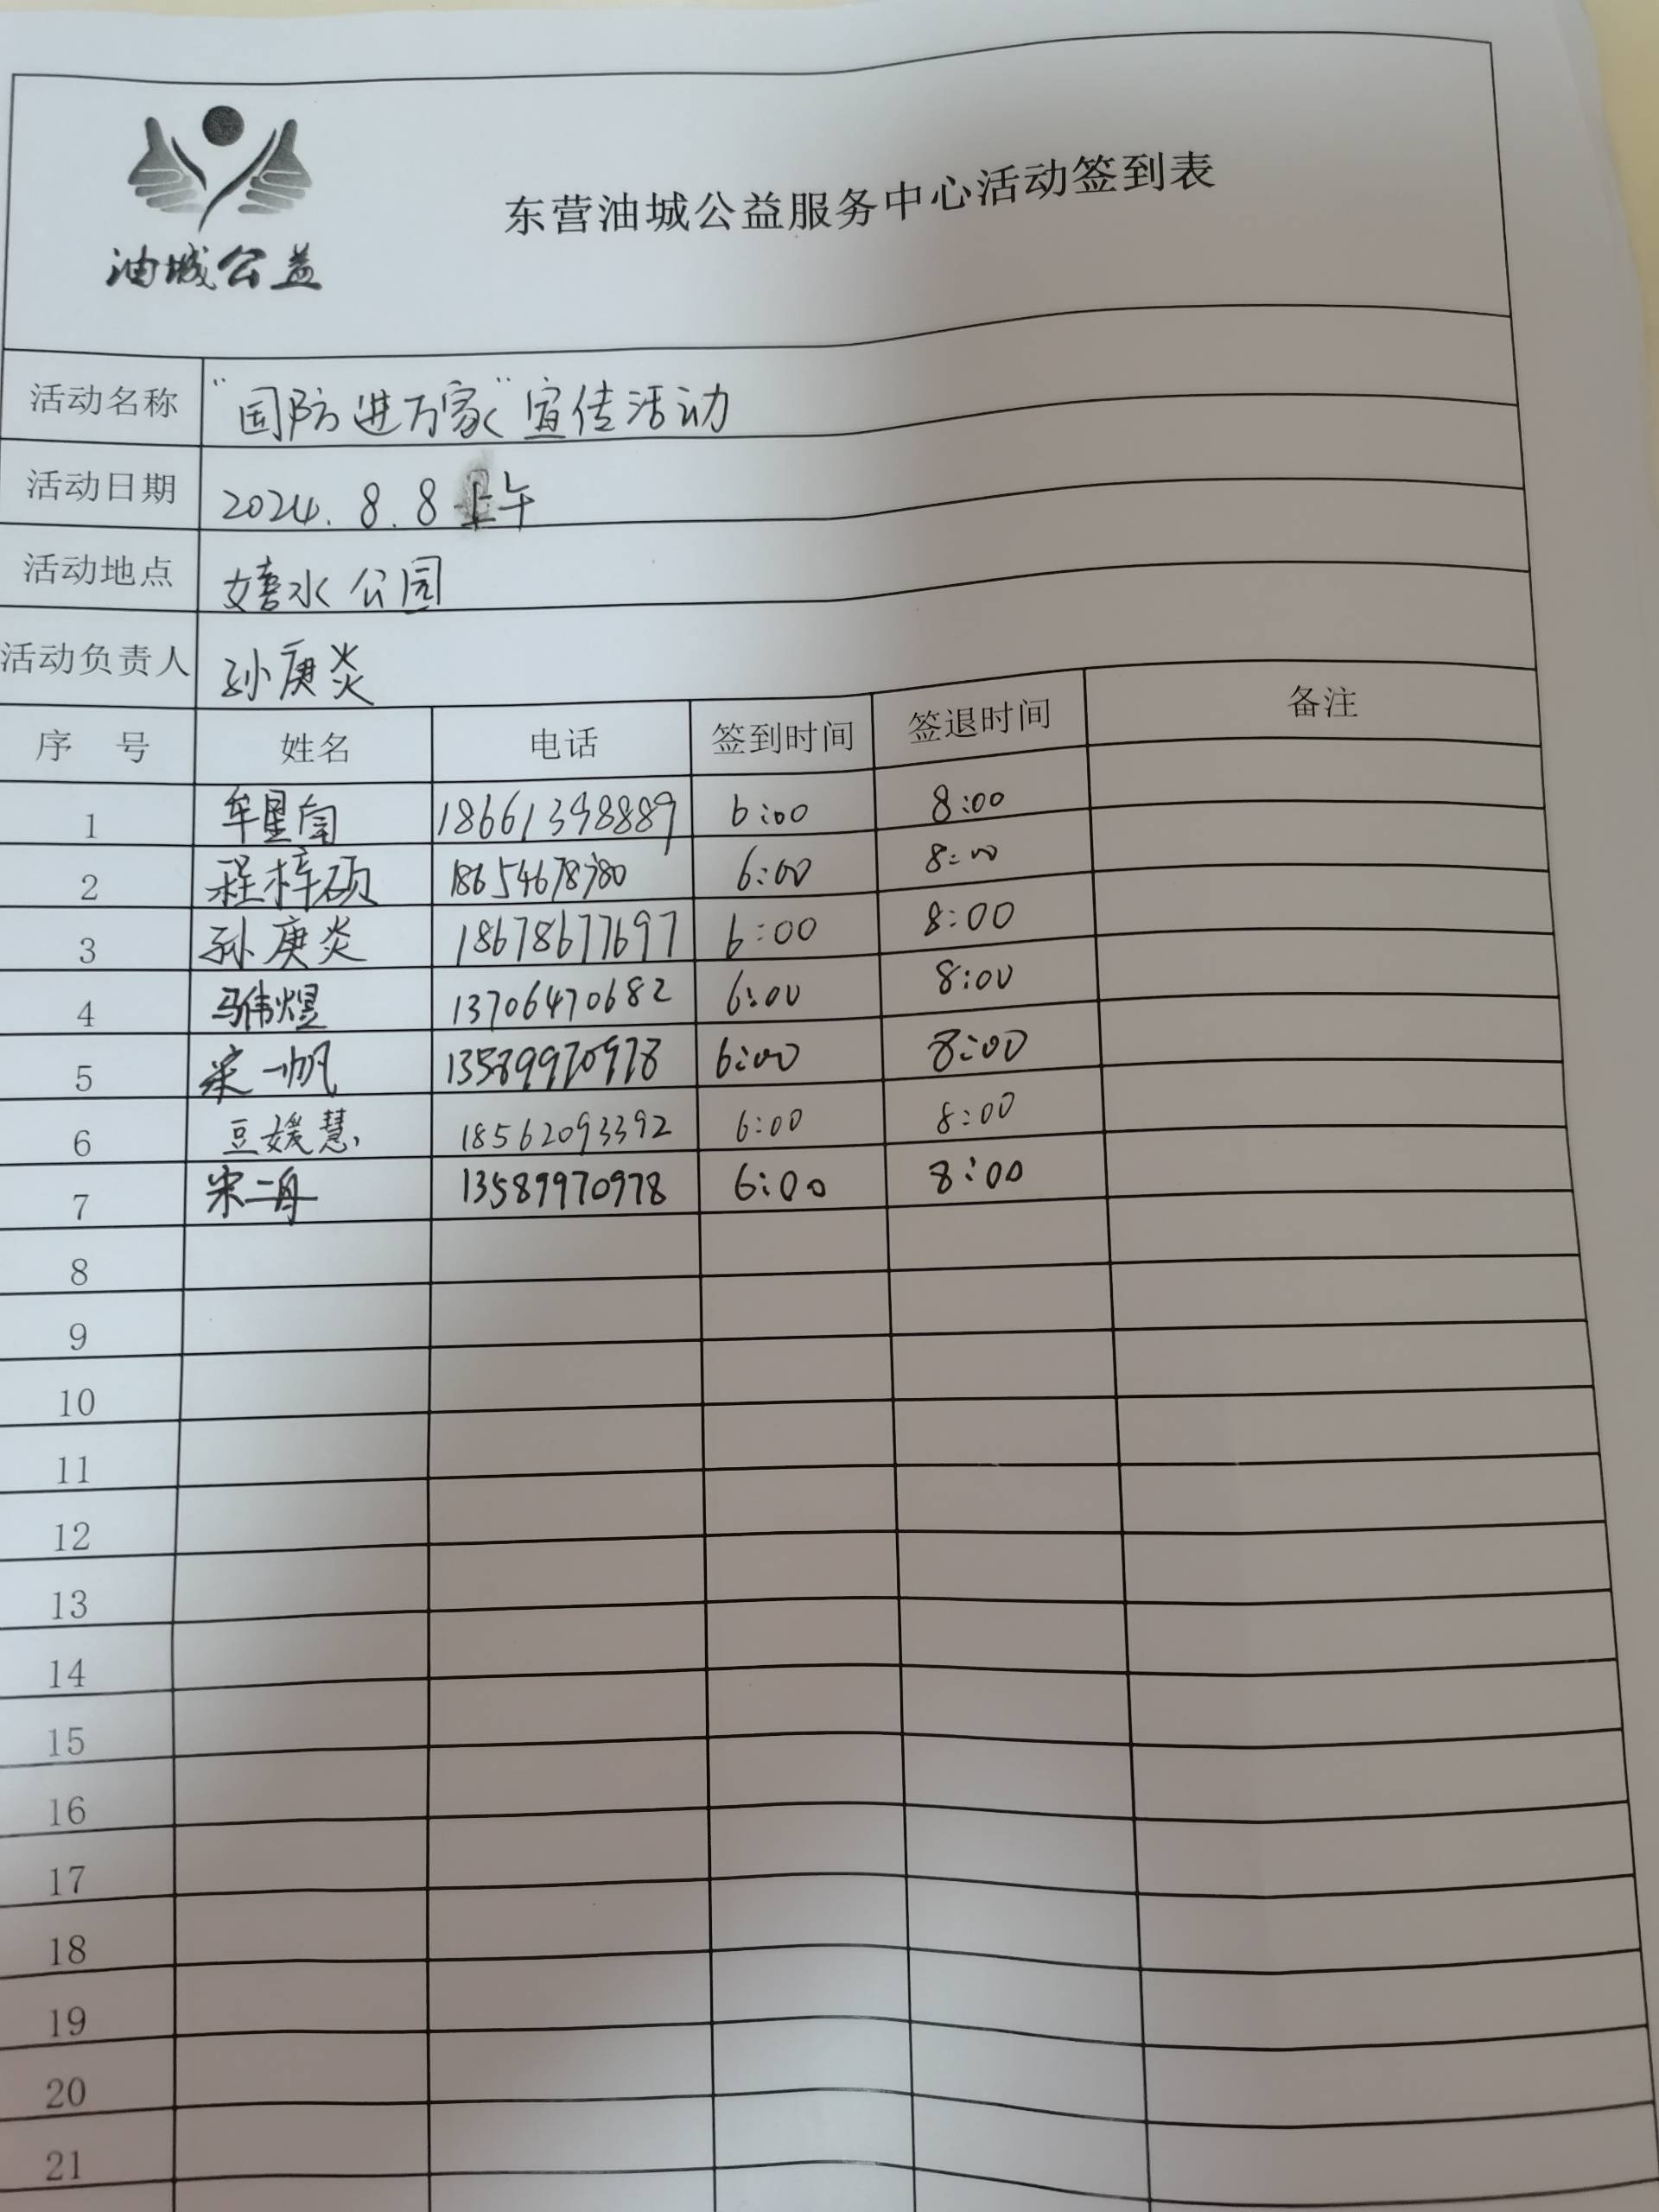 东营油城公益服务中心活动签到表
油城公益
活动名称 "国防进万家"宣传活动
活动日期 2024.8.8 上午
活动地点 嬉水公园
活动负责人 孙庚炎
序 号 姓名 电话 签到时间 签退时间 备注
1 牟星 6:00 8:00
2 程梓硕 6:00 8:00
3 孙庚炎 18678677697 6:00 8:00
4 马伟煜 13706470682 6:00 8:00
5 宋一帆 13589970978 6:00 8:00
6 豆媛慧 18562093392 6:00 8:00
7 宋二舟 13589970978 6:00 8:00
8
9
10
11
12
13
14
15
16
17
18
19
20
21